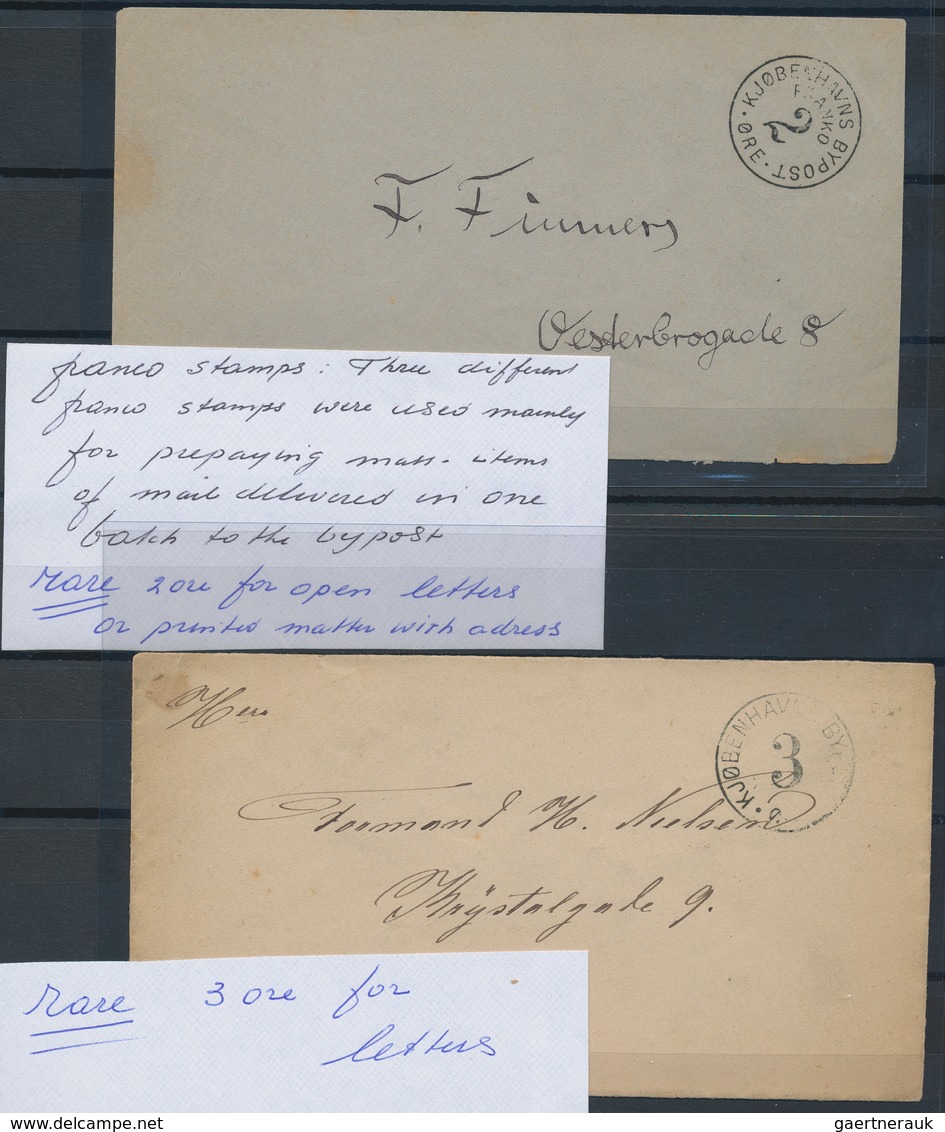 KJØBENHAVNS BYPOST · ØRE ·
FRANKO
2
F. Finmers
Vesterbrogade 8
franco stamps: Three different
franco stamps were used mainly
for prepaying mass-items
of mail delivered in one
batch to the bypost
rare 2 ore for open letters
or printed matter with adress
Herr
KJØBENHAVNS
3
Formand H. Nielsen
Krystalgade 9.
rare 3 ore for
letters
gaertnerauk